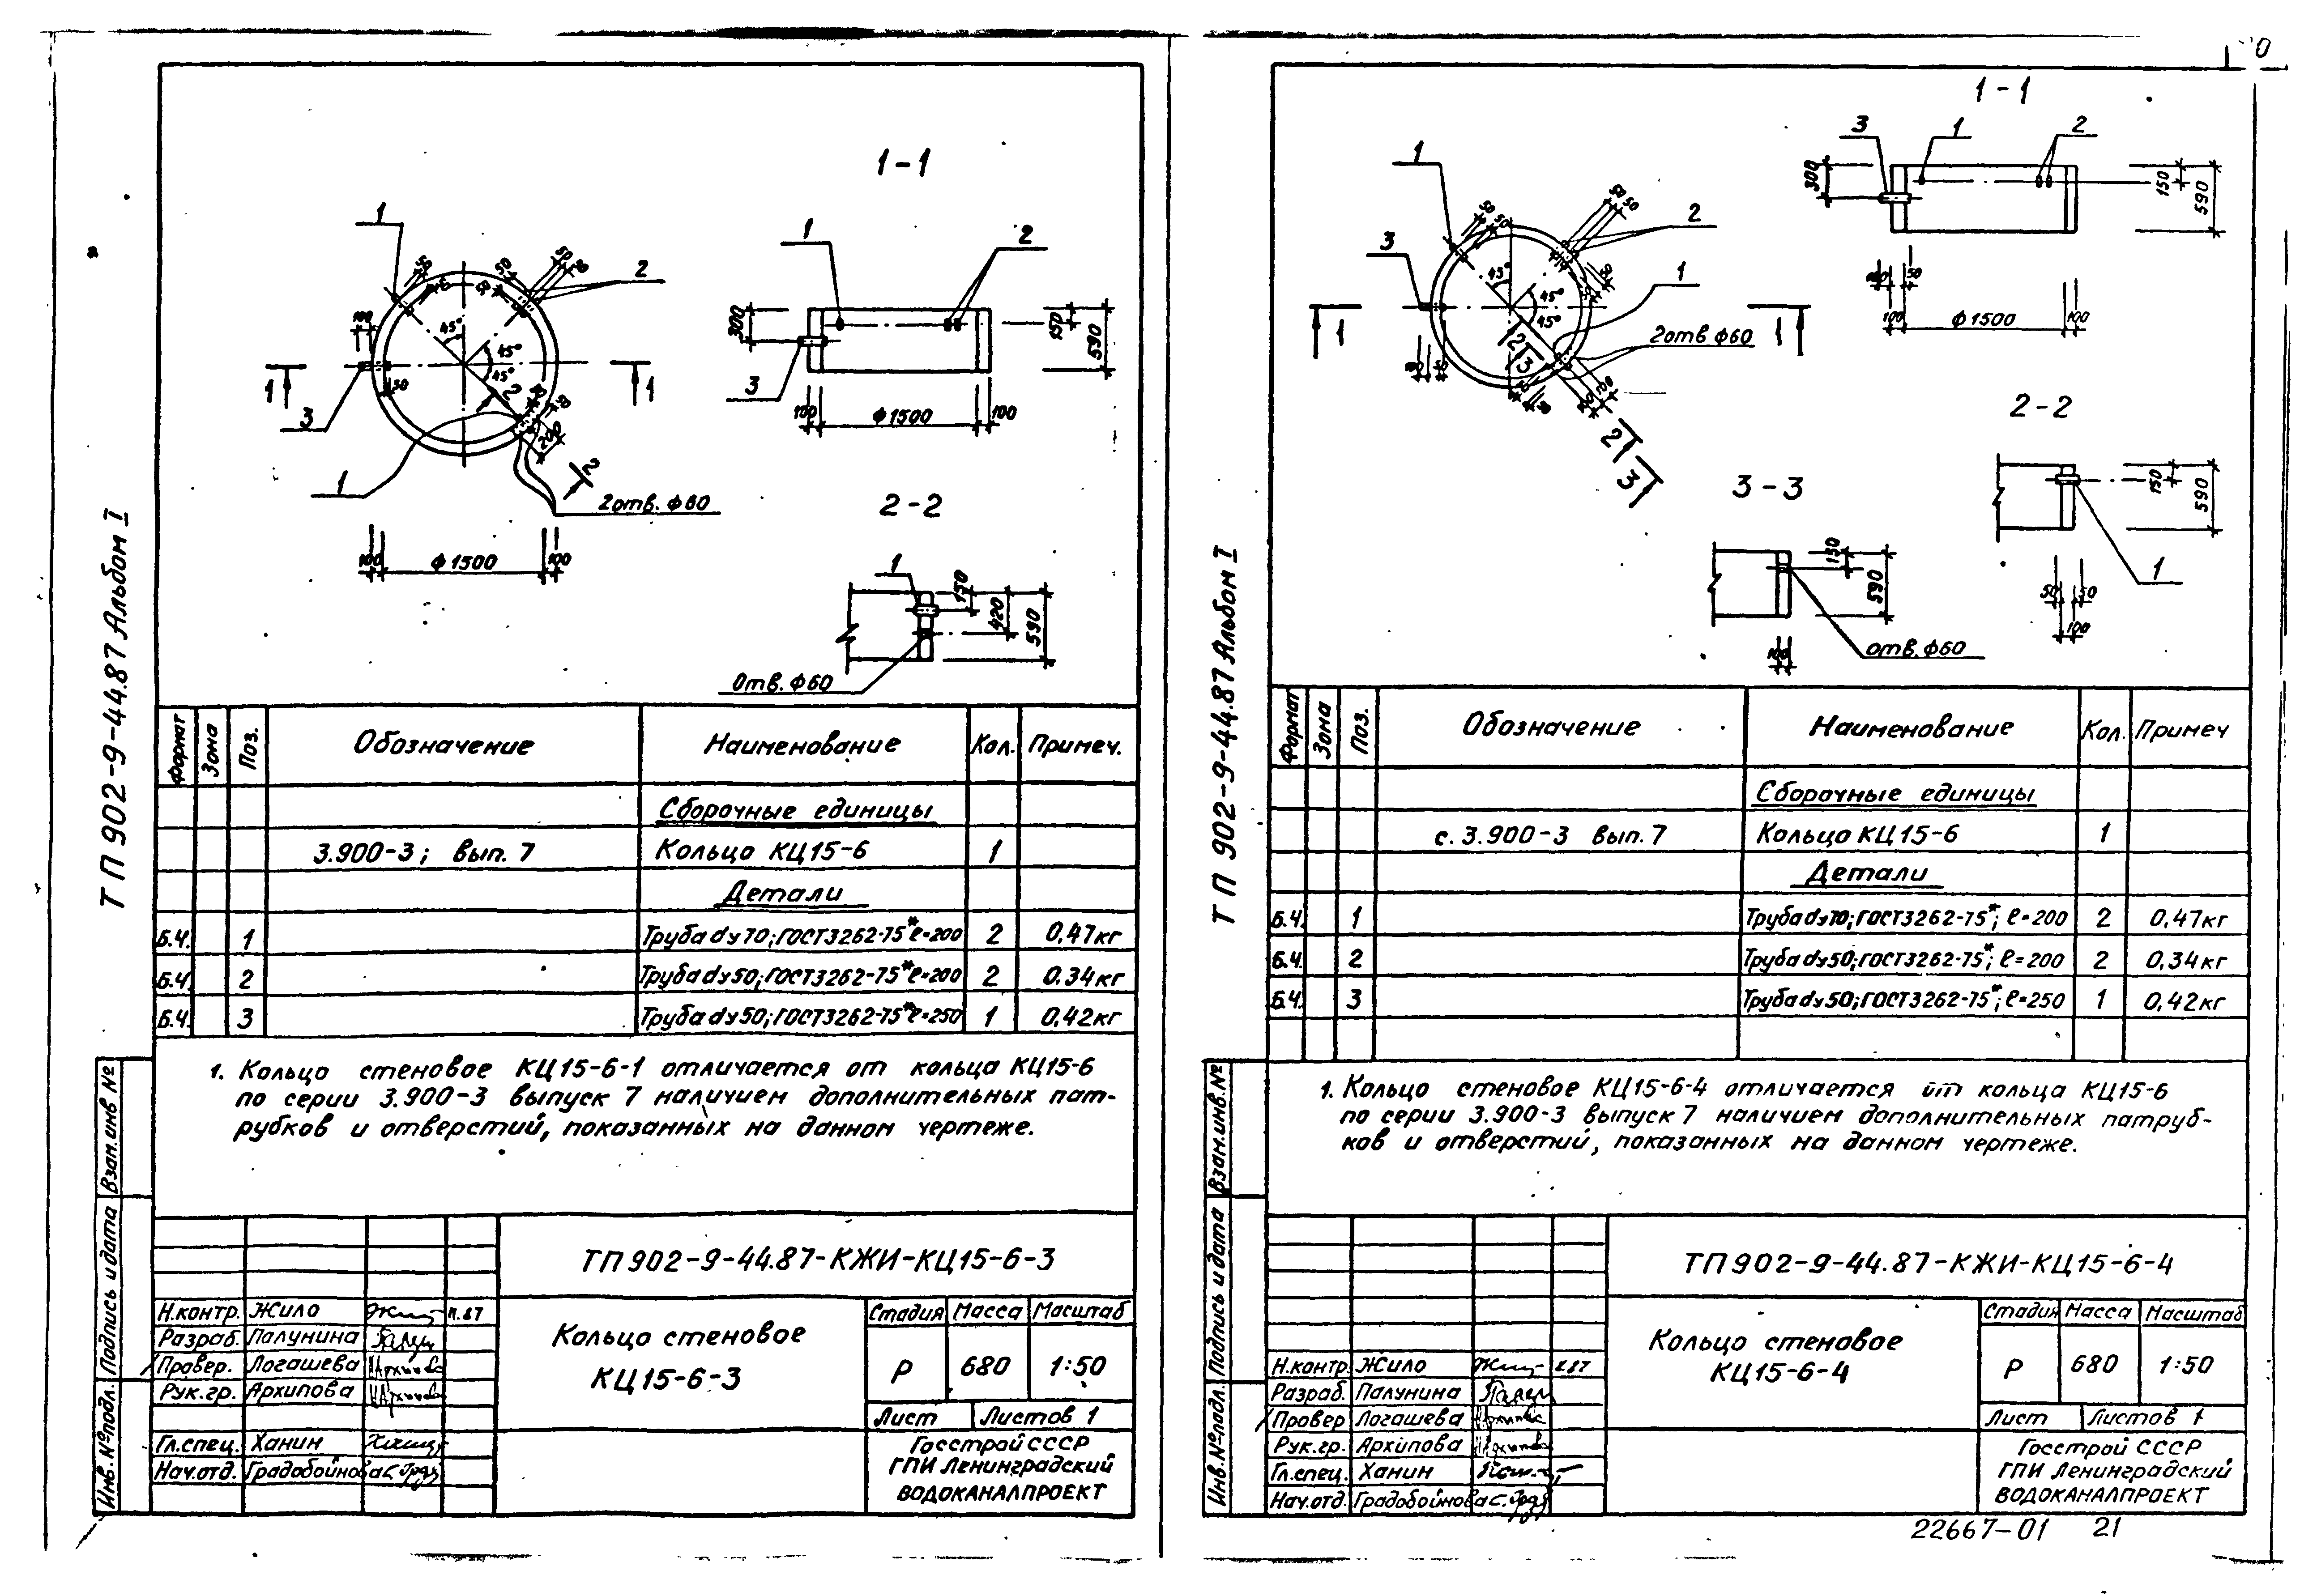 ТП 902-9-44.87 Альбом I
1-1
1
2
3
1
45°
45°
45°
2отв. ϕ60
100
ϕ1500
100
1
2
3
300
150
590
100
ϕ1500
100
2-2
1
150
420
590
Отв. ϕ60
Формат Зона Поз. Обозначение Наименование Кол. Примеч.
Сборочные единицы
3.900-3; вып. 7 Кольцо КЦ15-6 1
Детали
Б.Ч. 1 Труба dу70; ГОСТ3262-75* ℓ=200 2 0,47кг
Б.Ч. 2 Труба dу50; ГОСТ3262-75* ℓ=200 2 0.34кг
Б.Ч. 3 Труба dу50; ГОСТ3262-75* ℓ=250 1 0,42кг
1. Кольцо стеновое КЦ15-6-1 отличается от кольца КЦ15-6
по серии 3.900-3 выпуск 7 наличием дополнительных пат-
рубков и отверстий, показанных на данном чертеже.
Взам.инв №
Подпись и дата
Инв.№подл.
ТП902-9-44.87-КЖИ-КЦ15-6-3
Н.контр. Жило 11.87
Разраб. Палунина
Провер. Логашева
Рук.гр. Архипова
Гл.спец. Ханин
Нач.отд. Градобойнова
Кольцо стеновое
КЦ15-6-3
Стадия Масса Масштаб
Р 680 1:50
Лист Листов 1
Госстрой СССР
ГПИ Ленинградский
ВОДОКАНАЛПРОЕКТ
ТП 902-9-44.87 Альбом I
1-1
1
2
3
1
45°
45°
45°
2отв ϕ60
3
1
2
300
150
590
50
100
ϕ1500
100
2-2
150
590
1
50
50
100
3-3
150
590
100
отв. ϕ60
Формат Зона Поз. Обозначение Наименование Кол. Примеч
Сборочные единицы
с. 3.900-3 вып. 7 Кольцо КЦ15-6 1
Детали
Б.Ч. 1 Труба dу70; ГОСТ3262-75*; ℓ=200 2 0,47кг
Б.Ч. 2 Труба dу50; ГОСТ3262-75*; ℓ=200 2 0,34кг
Б.Ч. 3 Труба dу50; ГОСТ3262-75*; ℓ=250 1 0,42кг
1. Кольцо стеновое КЦ15-6-4 отличается от кольца КЦ15-6
по серии 3.900-3 выпуск 7 наличием дополнительных патруб-
ков и отверстий, показанных на данном чертеже.
Взам.инв.№
Подпись и дата
Инв.№подл.
ТП902-9-44.87-КЖИ-КЦ15-6-4
Н.контр. Жило 11.87
Разраб. Палунина
Провер Логашева
Рук.гр. Архипова
Гл.спец. Ханин
Нач.отд. Градобойнова
Кольцо стеновое
КЦ15-6-4
Стадия Масса Масштаб
Р 680 1:50
Лист Листов 1
Госстрой СССР
ГПИ Ленинградский
ВОДОКАНАЛПРОЕКТ
22667-01 21